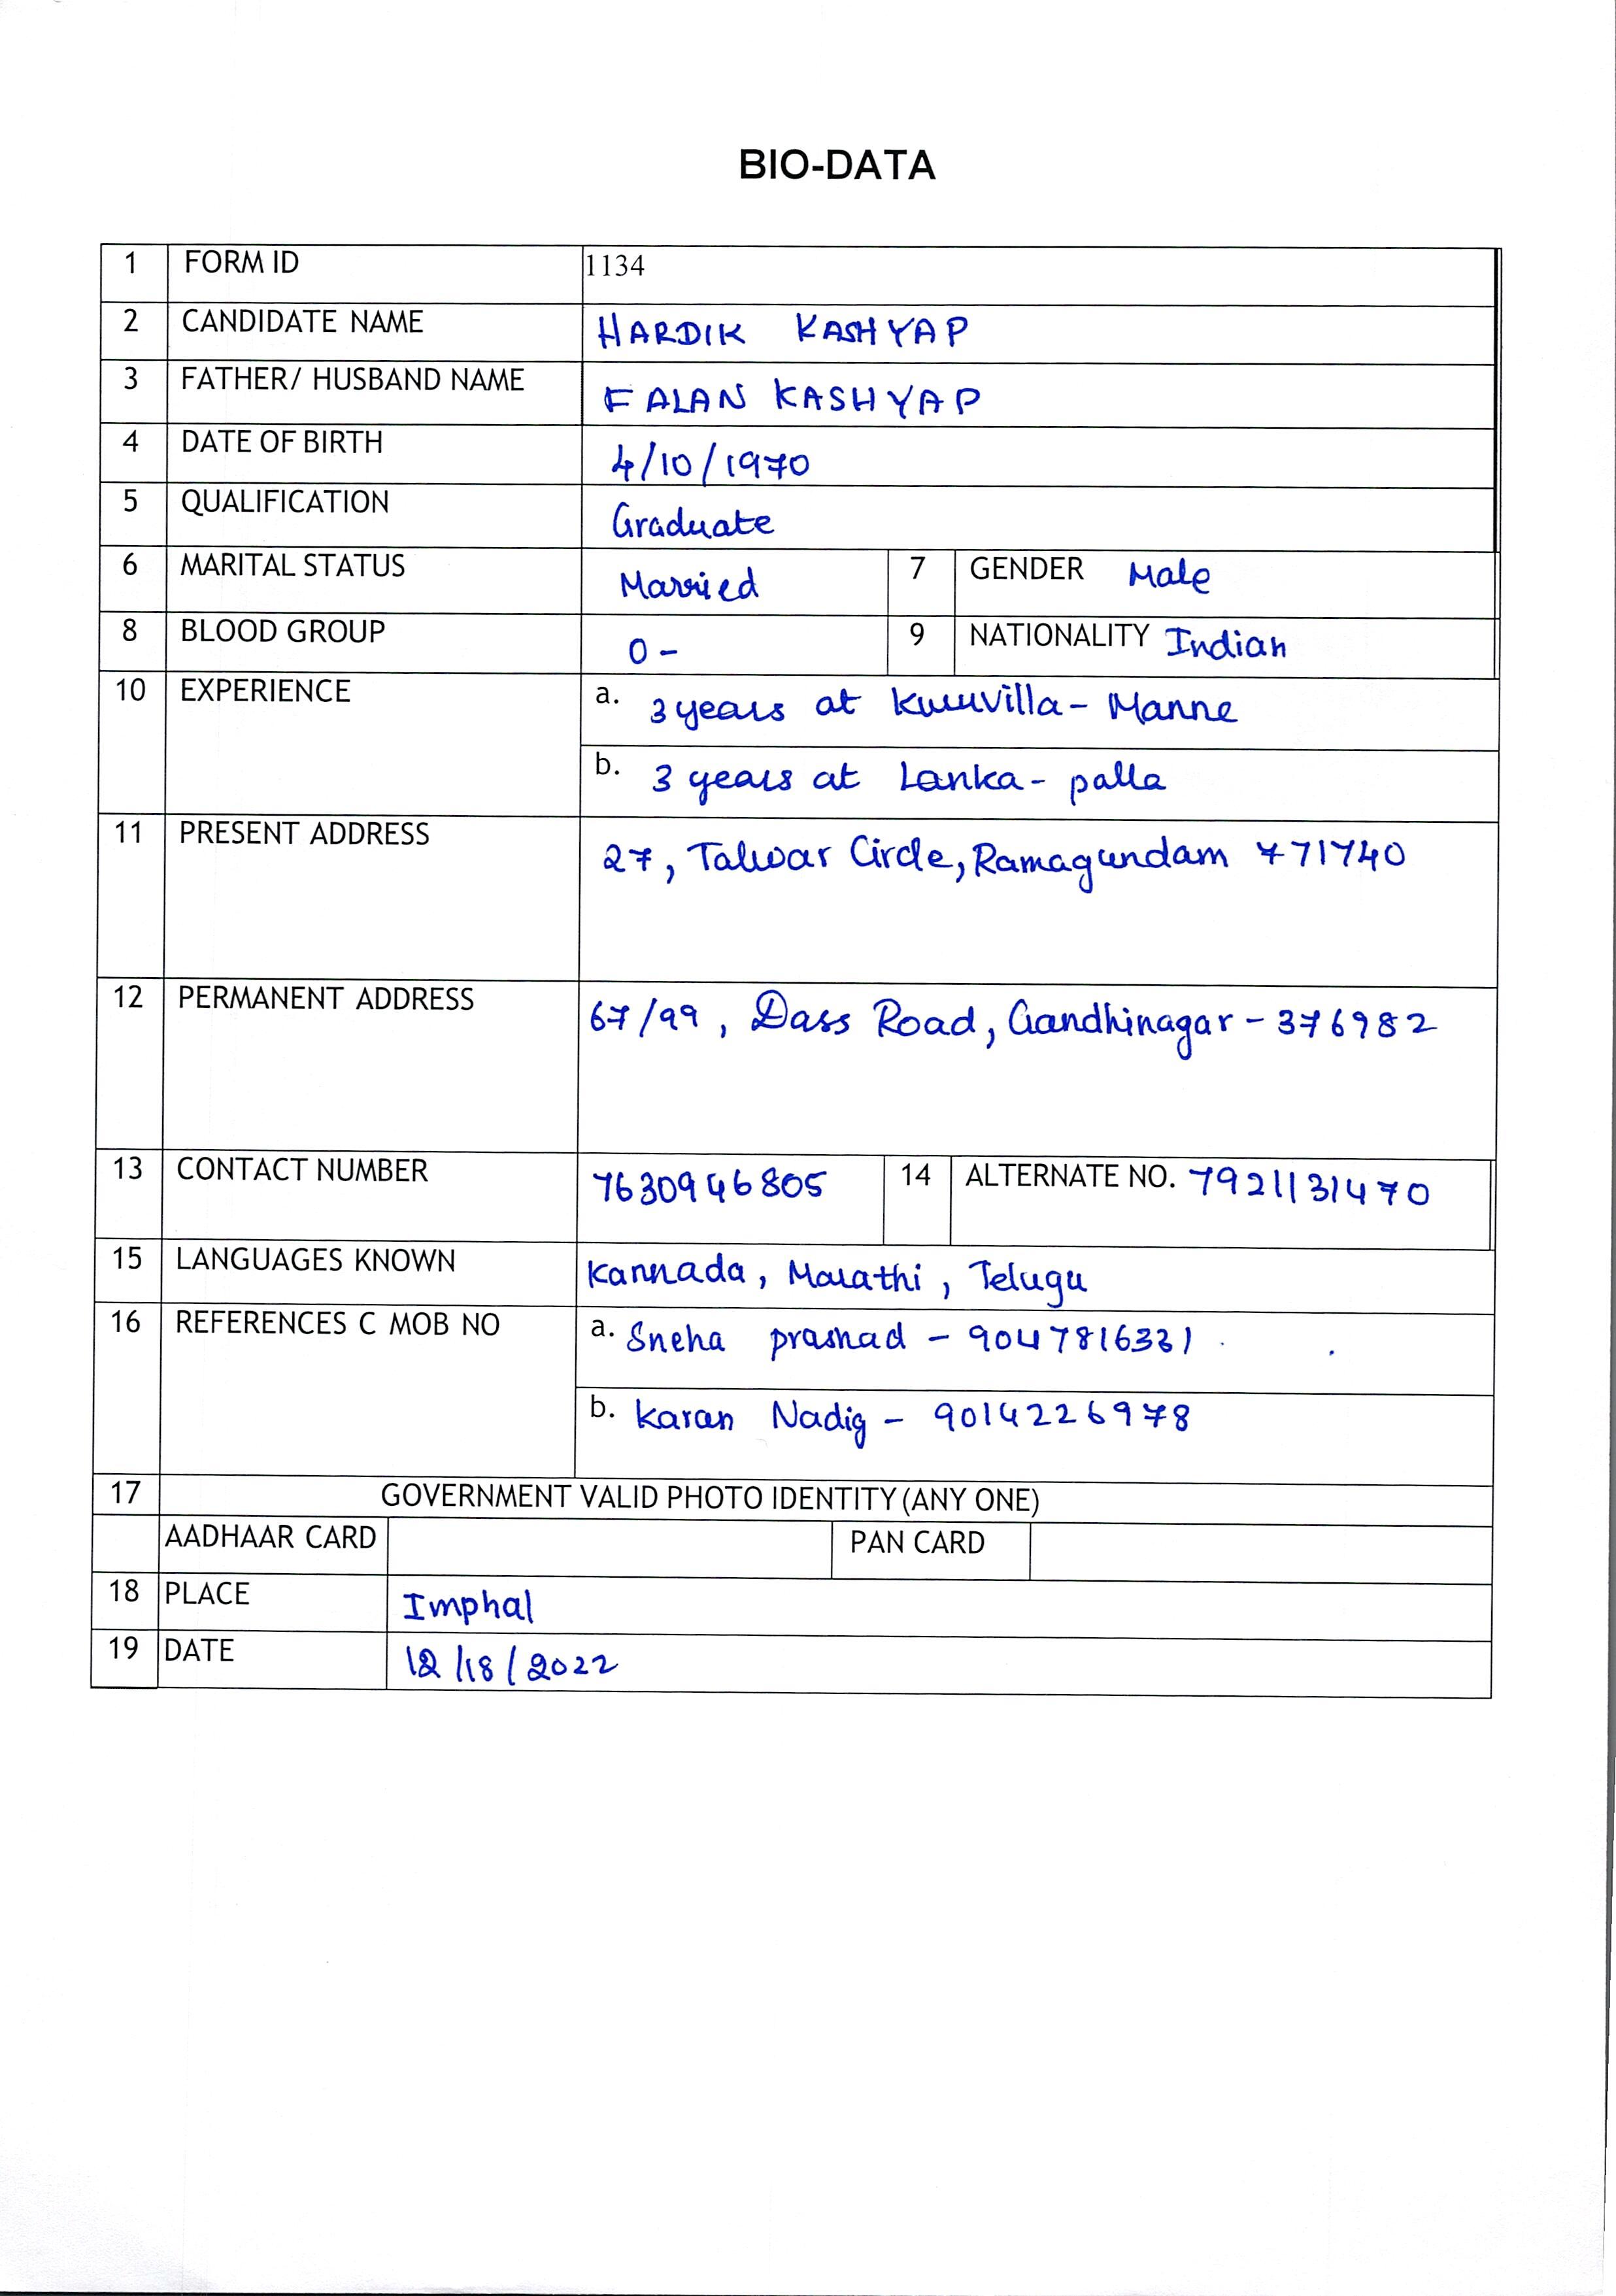 BIO-DATA
1 FORM ID 1134
2 CANDIDATE NAME HARDIK KASHYAP
3 FATHER/ HUSBAND NAME FALAN KASHYAP
4 DATE OF BIRTH 4/10/1970
5 QUALIFICATION Graduate
6 MARITAL STATUS Married 7 GENDER Male
8 BLOOD GROUP O- 9 NATIONALITY Indian
10 EXPERIENCE a. 3 years at Kuruvilla - Manne
b. 3 years at Lanka - palla
11 PRESENT ADDRESS 27, Talwar Circle, Ramagundam 771740
12 PERMANENT ADDRESS 67/99, Dass Road, Gandhinagar - 376982
13 CONTACT NUMBER 7630946805 14 ALTERNATE NO. 7921131470
15 LANGUAGES KNOWN Kannada, Marathi, Telugu
16 REFERENCES C MOB NO a. Sneha prashad - 9047816331
b. Karan Nadig - 9014226978
17 GOVERNMENT VALID PHOTO IDENTITY (ANY ONE)
AADHAAR CARD PAN CARD
18 PLACE Imphal
19 DATE 12/18/2022